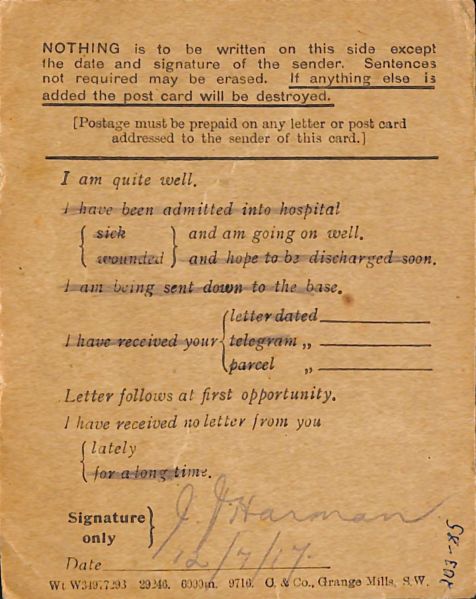 NOTHING is to be written on this side except
the date and signature of the sender. Sentences
not required may be erased. If anything else is
added the post card will be destroyed.
[Postage must be prepaid on any letter or post card
addressed to the sender of this card.]
I am quite well.
I have been admitted into hospital
{ sick } and am going on well.
{ wounded } and hope to be discharged soon.
I am being sent down to the base.
I have received your { letter dated
telegram „
parcel „
Letter follows at first opportunity.
I have received no letter from you
{ lately
for a long time.
Signature only } J. J. Harman
Date 12/7/17.
29246. 6000m. 9716. C. & Co., Grange Mills, S.W.